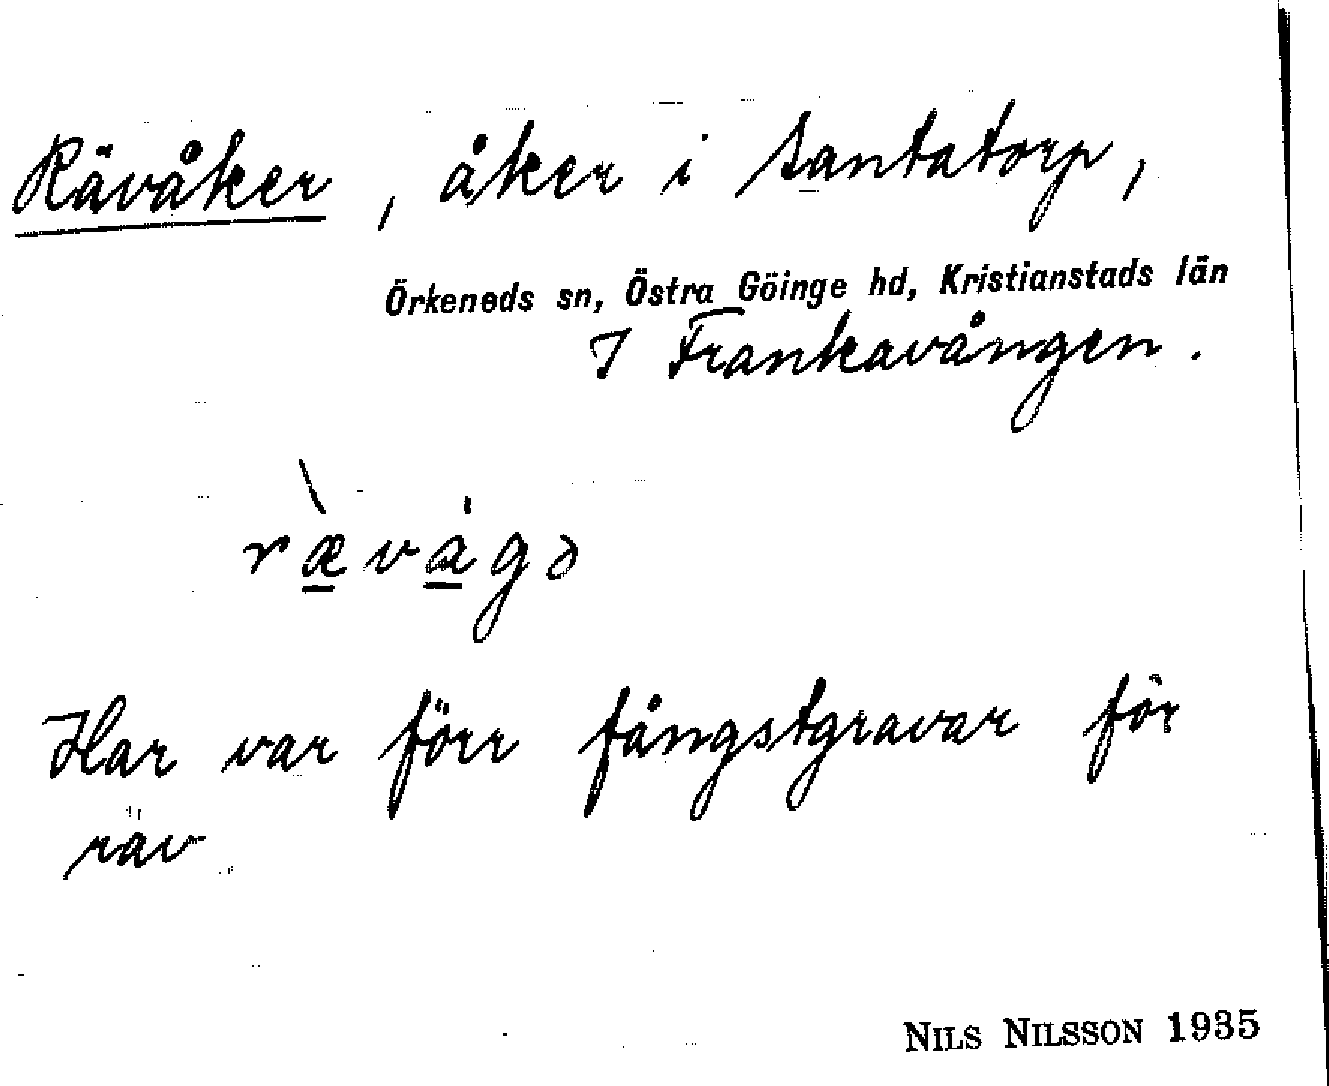 Rävåker, åker i Santatorp,
Örkeneds sn, Östra Göinge hd, Kristianstads län
I Frankavången.
rævågə
Har var förr fångstgravar för
räv
NILS NILSSON 1935